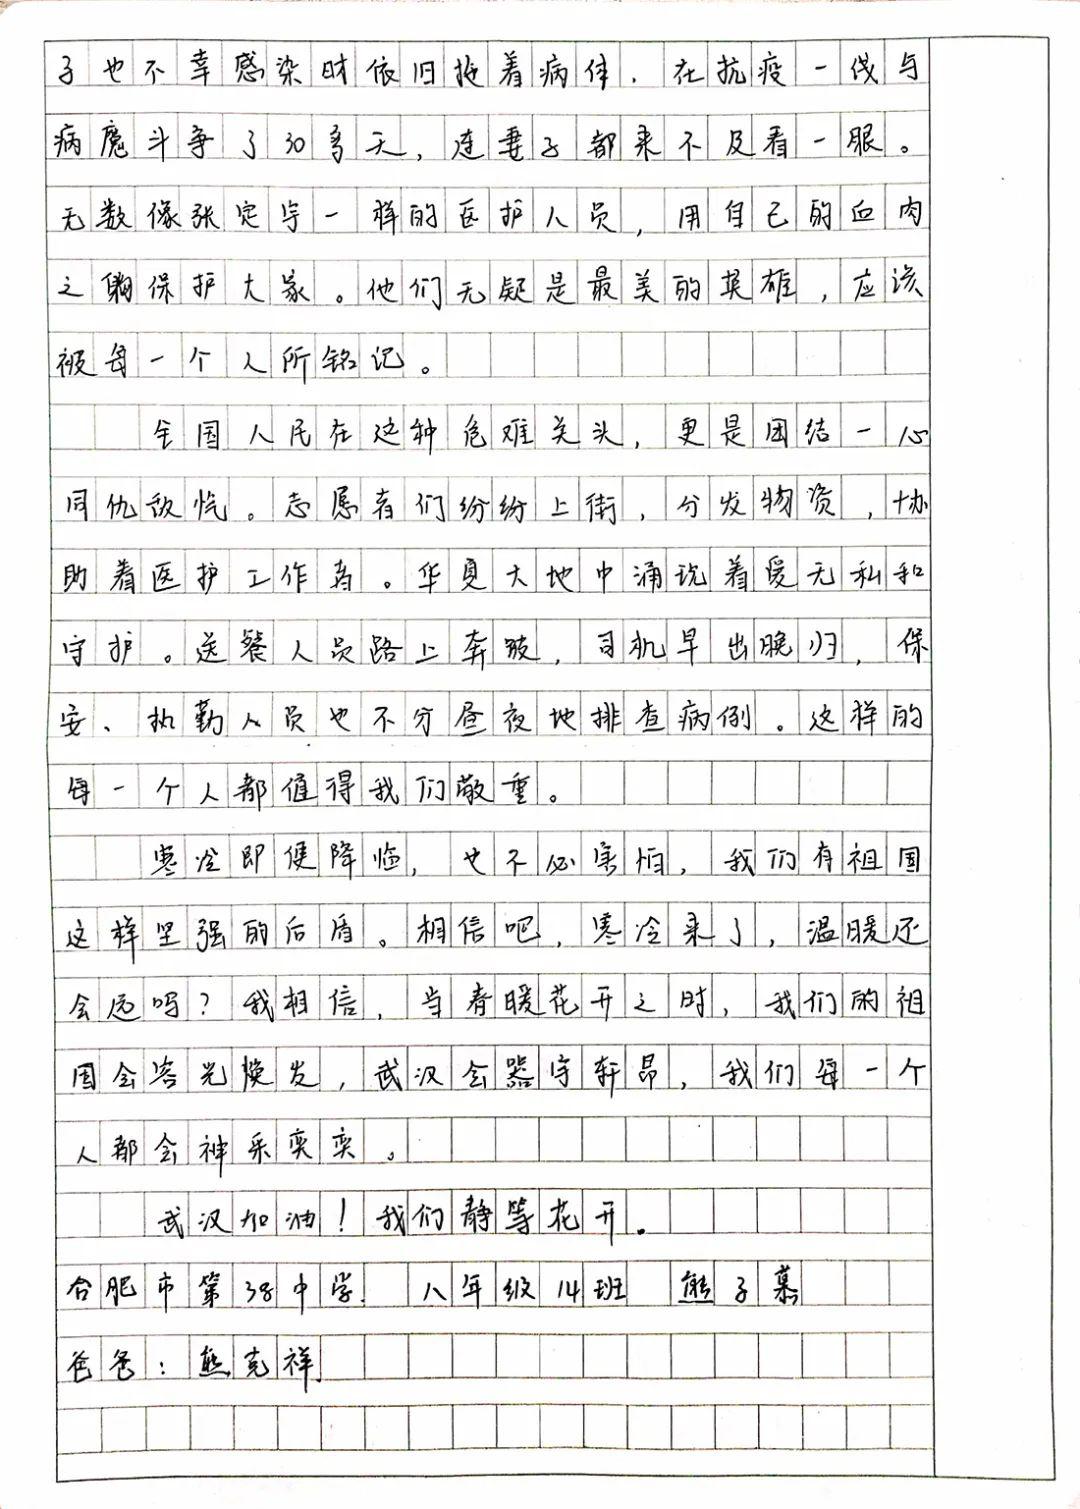 子也不幸感染时依旧拖着病体，在抗疫一线与
病魔斗争了30多天，连妻子都来不及看一眼。
无数像张定宇一样的医护人员，用自己的血肉
之躯保护大家。他们无疑是最美的英雄，应该
被每一个人所铭记。
全国人民在这种危难关头，更是团结一心
同仇敌忾。志愿者们纷纷上街，分发物资，协
助着医护工作者。华夏大地中涌现着爱无私和
守护。送餐人员路上奔驰，司机早出晚归，保
安、执勤人员也不分昼夜地排查病例。这样的
每一个人都值得我们敬重。
寒冷即便降临，也不必害怕，我们有祖国
这样坚强的后盾。相信吧，寒冷来了，温暖还
会远吗？我相信，当春暖花开之时，我们的祖
国会容光焕发，武汉会器宇轩昂，我们每一个
人都会神采奕奕。
武汉加油！我们静等花开。
合肥市第38中学 八年级14班 熊子慕
爸爸：熊克祥